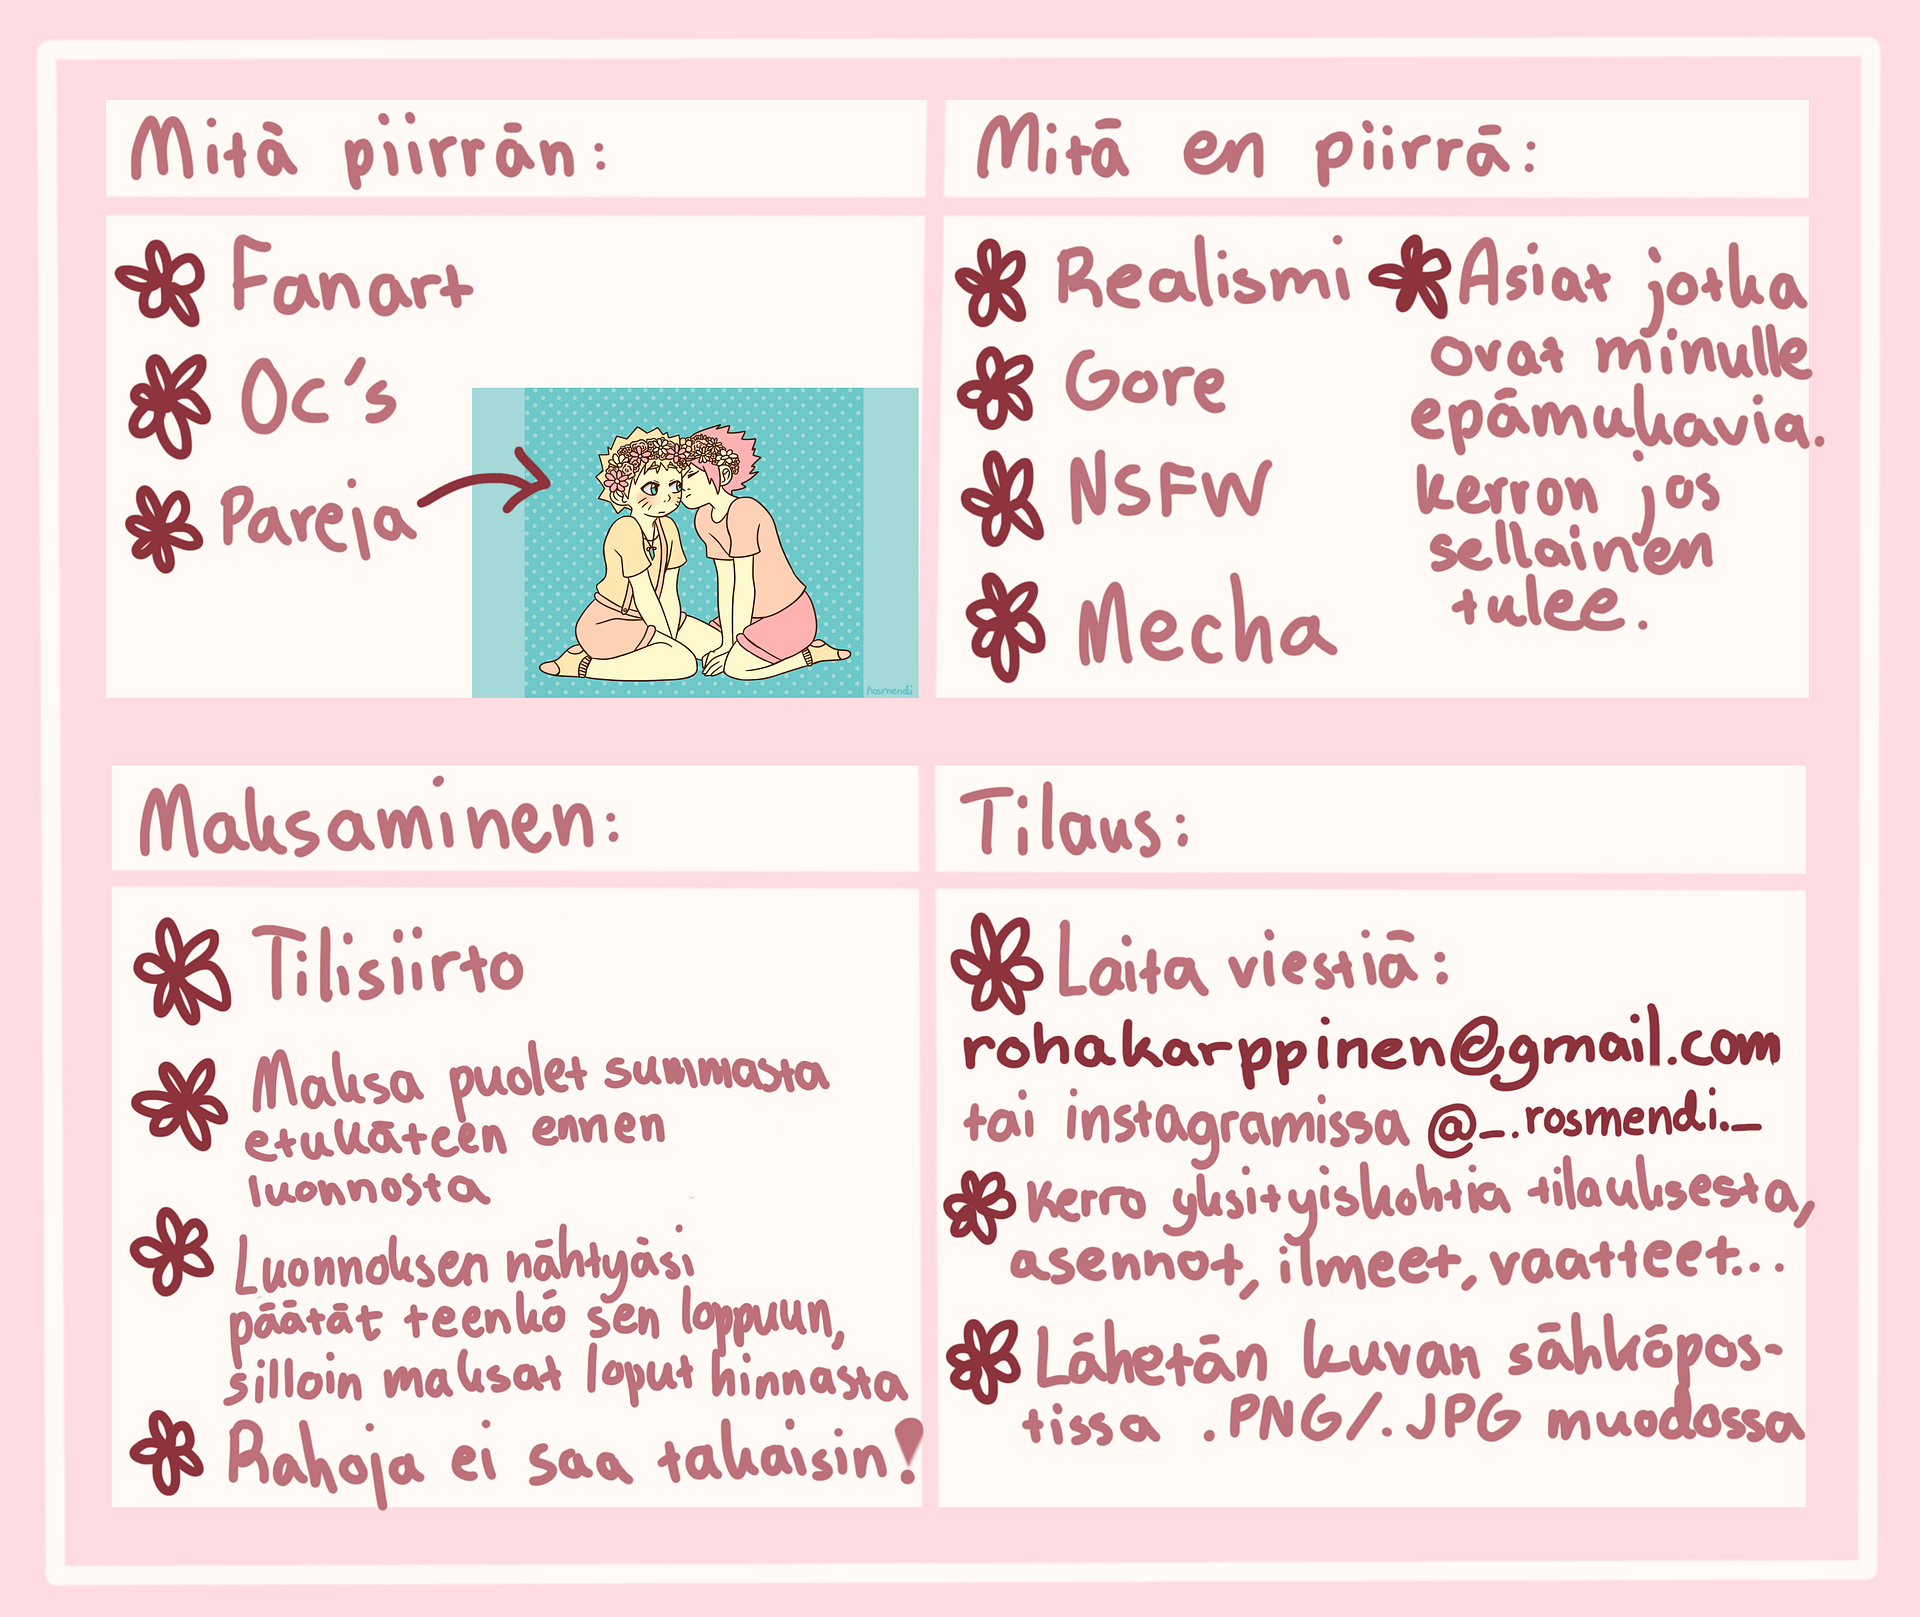 Mità piirrän:
Fanart
Oc's
Pareja
Rosmendi
Mitä en piirrä:
Realismi
Gore
NSFW
Mecha
Asiat jotka
ovat minulle
epämukavia.
kerron jos
sellainen
tulee.
Maksaminen:
Tilisiirto
Maksa puolet summasta
etukäteen ennen
luonnosta
Luonnoksen nähtyäsi
päätät teenkö sen loppuun,
silloin maksat loput hinnasta
Rahoja ei saa takaisin!
Tilaus:
Laita viestiä:
rohakarppinen@gmail.com
tai instagramissa @_.rosmendi._
Kerro yksityiskohtia tilauksesta,
asennot, ilmeet, vaatteet...
Lähetän kuvan sähköpos-
tissa .PNG/.JPG muodossa